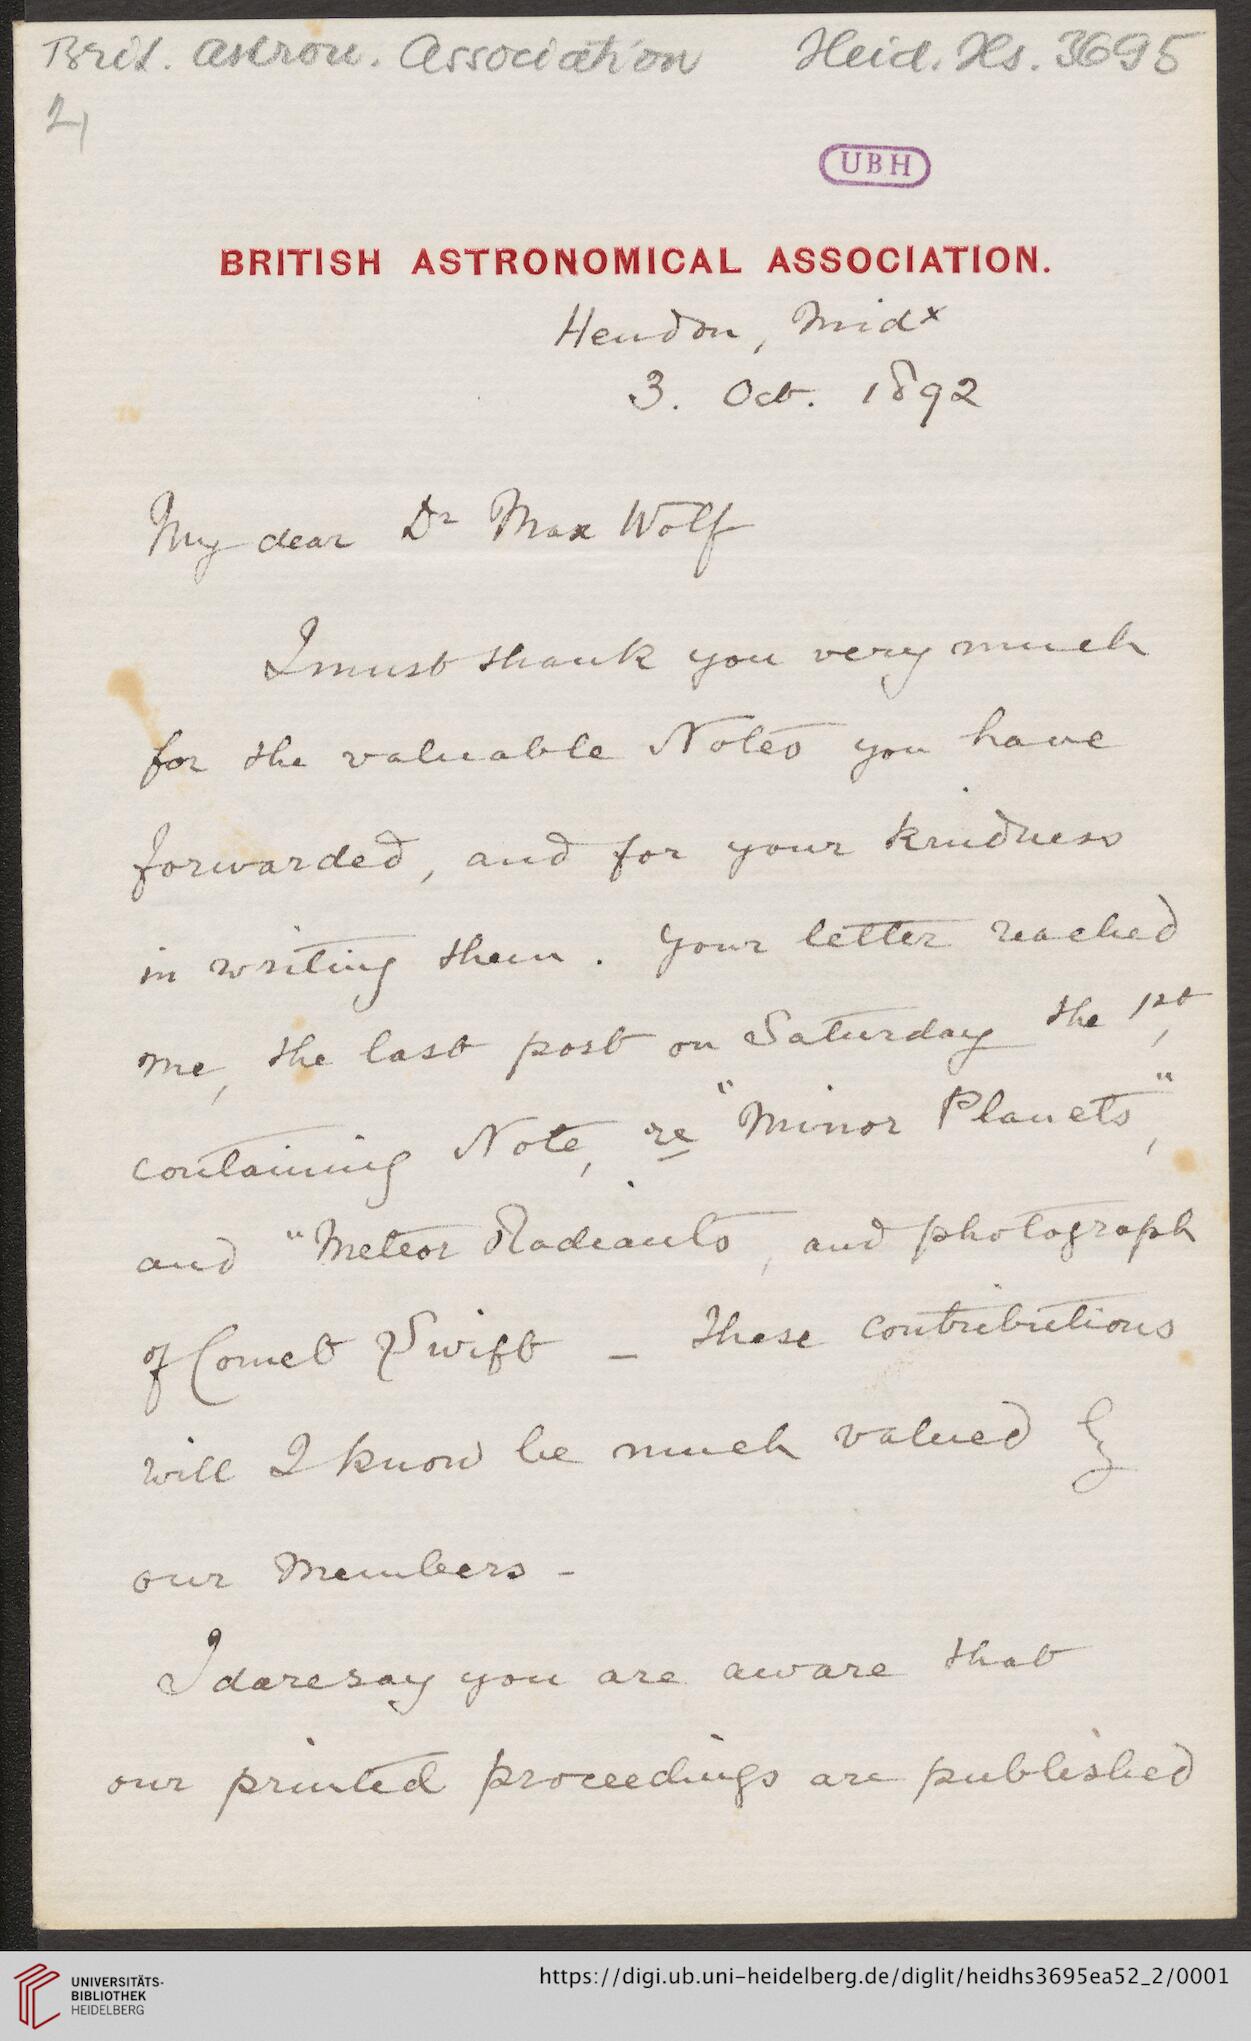 Brit. Astron. Association Heid. Hs. 3695
2,
UBH
BRITISH ASTRONOMICAL ASSOCIATION.
Hendon, Midx
3. Oct. 1892
My dear Dr Max Wolf
I must thank you very much
for the valuable Notes you have
forwarded, and for your kindness
in writing them. Your letter reached
me, the last post on Saturday the 1st,
containing Note, re "Minor Planets",
and "Meteor Radiants, and photograph
of Comet Swift – These contributions
will I know be much valued by
our Members –
I daresay you are aware that
our printed proceedings are published
UNIVERSITÄTS-
BIBLIOTHEK
HEIDELBERG
https://digi.ub.uni-heidelberg.de/diglit/heidhs3695ea52_2/0001